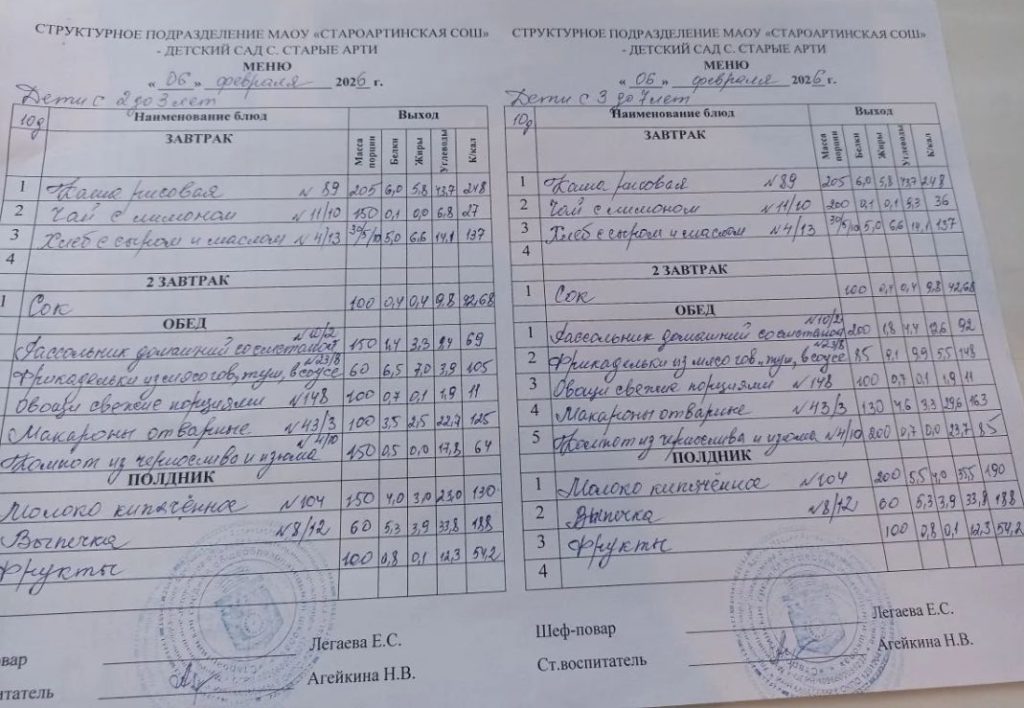 СТРУКТУРНОЕ ПОДРАЗДЕЛЕНИЕ МАОУ «СТАРОАРТИНСКАЯ СОШ»
- ДЕТСКИЙ САД С. СТАРЫЕ АРТИ
МЕНЮ
« 06 » февраля 2026 г.
Дети с 2 до 3 лет
10д Наименование блюд Выход
ЗАВТРАК Масса порции Белки Жиры Углеводы К/кал
1 Каша рисовая №89 205 6,0 5,8 43,7 248
2 Чай с лимоном №11/10 150 0,1 0,0 6,8 27
3 Хлеб с сыром и маслом №4/13 30/5/10 5,0 6,6 14,1 137
4
2 ЗАВТРАК
1 Сок 100 0,4 0,4 9,8 42,68
ОБЕД
Рассольник домашний со сметаной №10/2 150 1,4 3,3 8,4 69
Фрикадельки из мяса гов, туш, в соусе №23/8 60 6,5 7,0 3,9 105
Овощи свежие порциями №148 100 0,7 0,1 1,9 11
Макароны отварные №43/3 100 3,5 2,5 22,7 125
Компот из чернослива и изюма №4/10 150 0,5 0,0 17,8 64
ПОЛДНИК
Молоко кипячённое №104 150 4,0 3,0 23,0 130
Выпечка №8/12 60 5,3 3,9 33,8 188
Фрукты 100 0,8 0,1 12,3 54,2
овар Легаева Е.С.
питатель Агейкина Н.В.
СТРУКТУРНОЕ ПОДРАЗДЕЛЕНИЕ МАОУ «СТАРОАРТИНСКАЯ СОШ»
- ДЕТСКИЙ САД С. СТАРЫЕ АРТИ
МЕНЮ
« 06 » февраля 2026 г.
Дети с 3 до 7 лет
10д Наименование блюд Выход
ЗАВТРАК Масса порции Белки Жиры Углеводы К/кал
1 Каша рисовая №89 205 6,0 5,8 43,7 248
2 Чай с лимоном №11/10 200 0,1 0,1 9,3 36
3 Хлеб с сыром и маслом №4/13 30/5/10 5,0 6,6 14,1 137
4
2 ЗАВТРАК
1 Сок 100 0,4 0,4 9,8 42,68
ОБЕД
1 Рассольник домашний со сметаной №10/2 200 1,8 4,4 12,6 92
2 Фрикадельки из мяса гов, туш, в соусе №23/8 85 9,1 9,9 5,5 148
3 Овощи свежие порциями №148 100 0,7 0,1 1,9 11
4 Макароны отварные №43/3 130 4,6 3,3 29,6 163
5 Компот из чернослива и изюма №4/10 200 0,7 0,0 23,7 85
ПОЛДНИК
1 Молоко кипячённое №104 200 5,5 4,0 35,5 190
2 Выпечка №8/12 60 5,3 3,9 33,8 188
3 Фрукты 100 0,8 0,1 12,3 54,2
4
Шеф-повар Легаева Е.С.
Ст.воспитатель Агейкина Н.В.